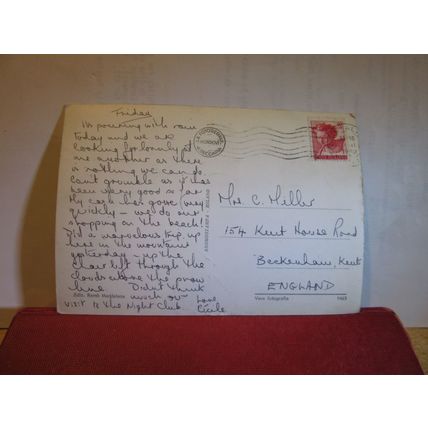 Friday
Its pouring with rain
today and we are
looking forlornly at
one another as there
is nothing we can do
cant grumble as it has
been very good so far
My cash has gone very
quickly - we do our
shopping on the beach!
Did a marvelous trip up
here in the mountains
yesterday - up the
chair lift through the
clouds above the snow
line. Didnt think
much our
visit to the Night Club
Love
Cicile
Ediz. Remb Magdalena
Mrs. C. Miller
154 Kent House Road
Beckenham, Kent
ENGLAND
Vera fotografia